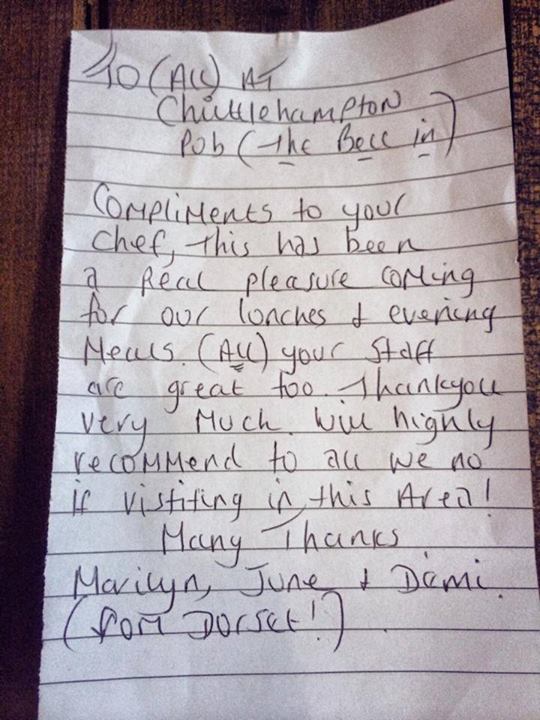 To (ALL) AT
Chittlehampton
Pub (the Bell in)
Compliments to your
Chef, this has been
a Real pleasure coming
for our lonches & evening
Meals. (All) your Staff
are great too. Thankyou
very Much. Will highly
recommend to all we no
if vistiting in this Area!
Many Thanks
Marilyn, June & Demi.
(from Dorset!)